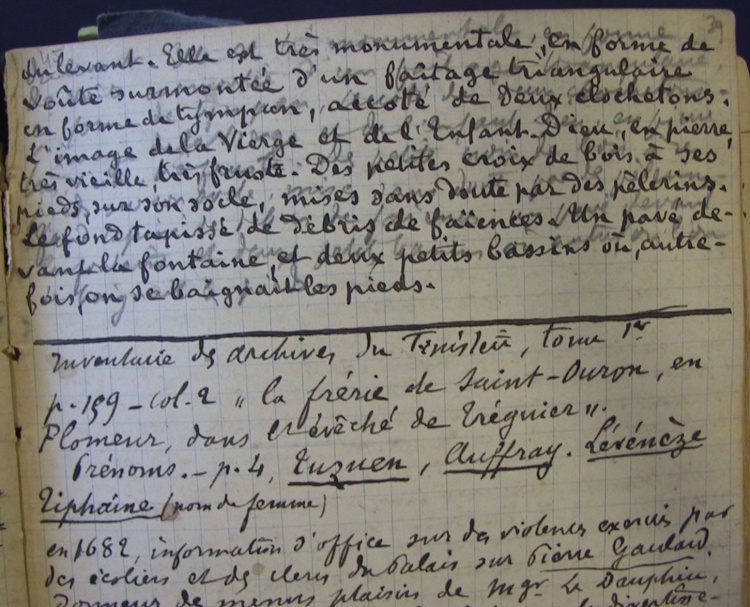 39
du levant. Elle est très monumentale, en forme de
voûte surmontée d'un faîtage triangulaire
en forme de tympan, accoté de deux clochetons.
L'image de la Vierge et de l'Enfant-Dieu, en pierre,
très vieille, très fruste. Des petites croix de bois à ses
pieds, sur son socle, mises sans doute par des pèlerins.
Le fond tapissé de débris de faïences. Un pavé de-
vant la fontaine, et deux petits bassins où, autre-
fois, on se baignait les pieds.
Inventaire des archives du Finistère, tome 1er
p. 159 - col. 2 " la frérie de Saint-Ouron, en
Plomeur, dans l'évêché de Tréguier ".
Prénoms. - p. 4, Tuzuen, Auffray. Lévénèze
Tiphaine (nom de femme)
en 1682, information d'office sur des violences exercées par
des écoliers et des clercs du Palais sur Pierre Gaulard,
donneur de menus plaisirs de Mgr Le Dauphin,